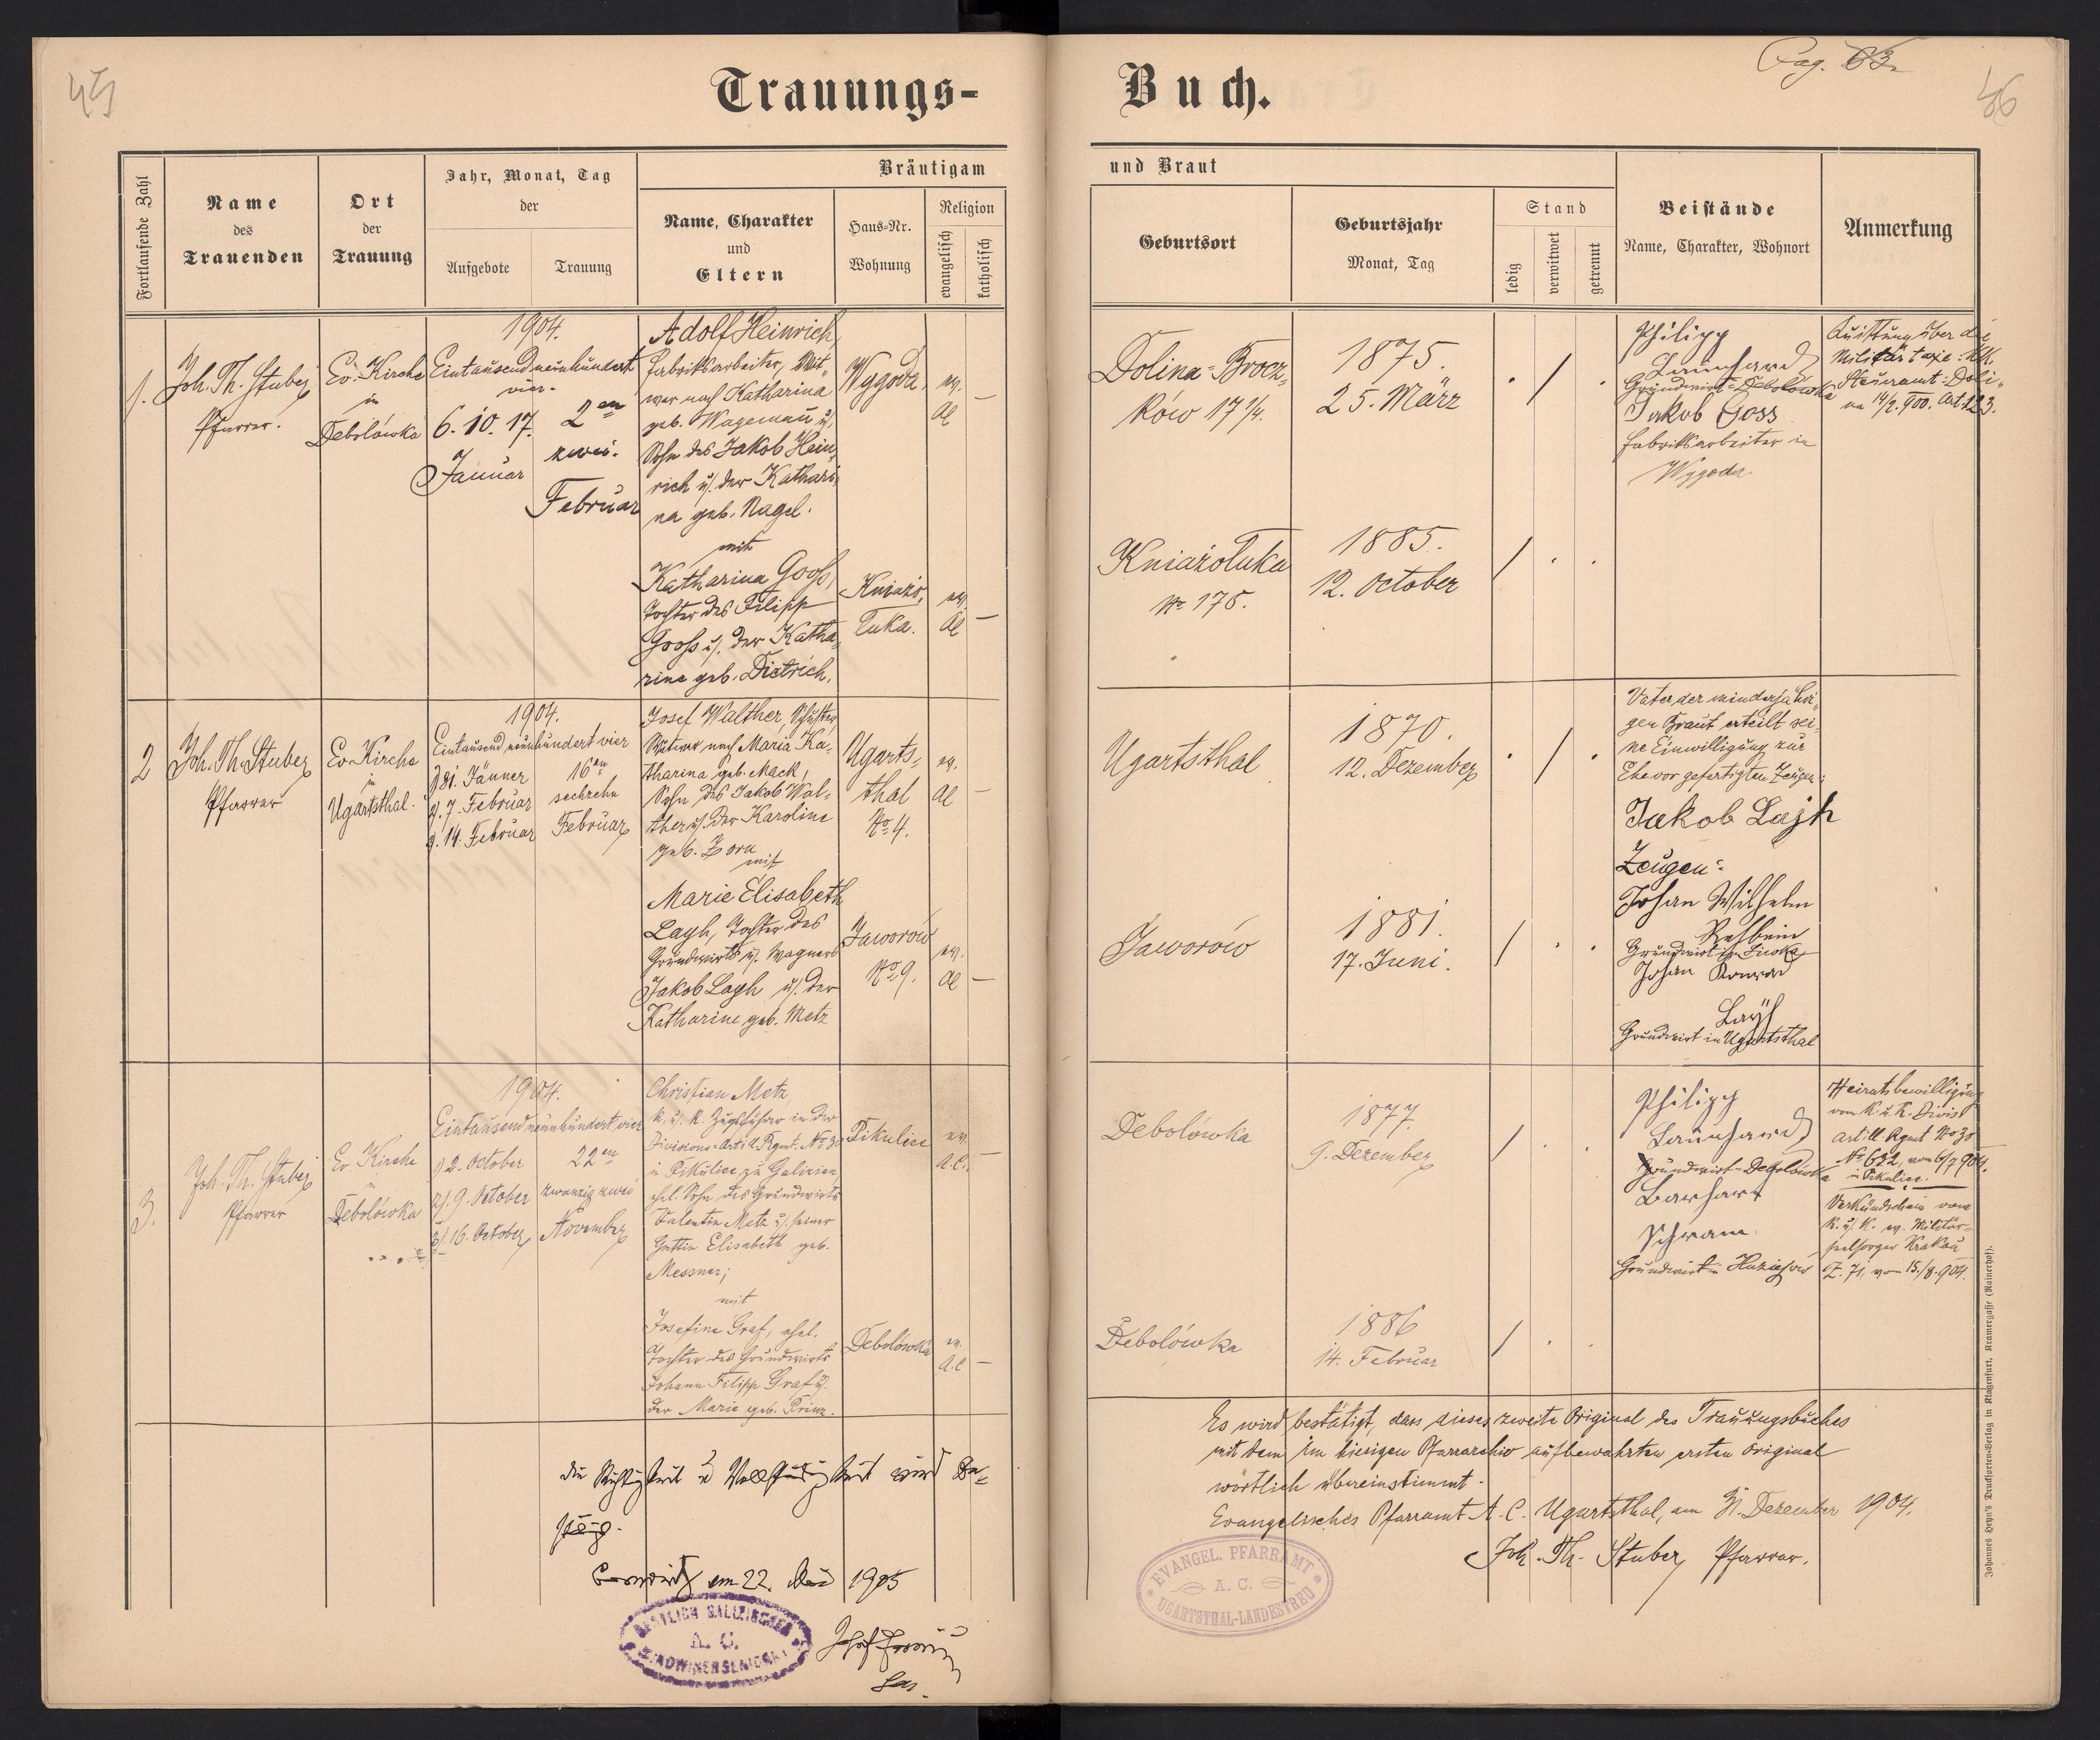 45
Trauungs-
Fortlaufende Zahl
Name
des
Trauenden
Ort
der
Trauung
Jahr, Monat, Tag
der
Aufgebote
Trauung
Bräutigam
Name, Charakter
und
Eltern
Haus-Nr.
Wohnung
Religion
evangelisch
katholisch
1.
Joh. Th. Stuber
Pfarrer.
Ev. Kirche
in
Debolówka
1904.
Eintausend neunhundert
vier.
6. 10. 17.
Januar
2en
zwei.
Februar
Adolf Heinrich,
Fabriksarbeiter, Wit-
wer nach Katharina
geb. Wagemann u.
Sohn des Jakob Hein-
rich u. der Kathari-
na geb. Nagel.
mit
Katharina Gooß,
Tochter des Filipp
Gooß u. der Katha-
rine geb. Dietrich.
Wygoda.
ev.
AC
—
Kniazo-
luka.
ev.
AC
—
2
Joh. Th. Stuber
Pfarrer
Ev. Kirche
in
Ugartsthal.
1904.
Eintausend neunhundert vier
1) 31. Jänner
2). 7. Februar
3. 14. Februar
16en
sechzehn
Februar
Josef Walther, Schuster
Witwer nach Maria Ka-
tharina geb. Mack,
Sohn des Jakob Wal-
ther u. der Karoline
geb. Zorn
mit
Marie Elisabeth
Layh, Tochter des
Grundwirts u. Wagners
Jakob Layh u. der
Katharine geb. Metz
Ugarts-
thal
No 4.
ev.
AC
—
Jaworów
No 9.
ev.
AC
—
3.
Joh. Th. Stuber
Pfarrer
Ev. Kirche
in
Debolówka
1904.
Eintausend neunhundert vier
1) 2. October
2). 9. October
3). 16. October
22en
zwanzig zwei
November
Christian Metz,
k. u. k. Zugsführer in der
Divisions-Artill. Rgmt. No 30
in Pikulice zu Galizien,
ehel. Sohn des Grundwirts
Valentin Metz u. seiner
Gattin Elisabeth geb.
Messner;
mit
Josefine Graf, ehel.
Tochter des Grundwirts
Johann Filipp Graf u.
der Marie geb. Prinz.
Pikulice
ev.
A.C.
—
Debolówka
ev.
A.C
—
Die Richtigkeit u Vollständigkeit wird be-
stätigt.
am 22. Mai 1905
A. C.
Sen.
Buch.
Pag. 63.
46
und Braut
Geburtsort
Geburtsjahr
Monat, Tag
Stand
ledig
verwitwet
getrennt
Beistände
Name, Charakter, Wohnort
Anmerkung
Dolina-Brocz-
ków 17 1/4.
1875.
25. März
Philipp
Launhard
Grundwirt-Debolówka
Jakob Goss
Fabriksarbeiter in
Wygoda
Quittung über die
Militärtaxe: K.K.
Steueramt-Doli-
na 14/2. 900. Art. 123.
Kniazoluka
No 178.
1885.
12. October
Ugartsthal
1870.
12. Dezember
Vater der minderjähri-
gen Braut erteilt sei-
ne Einwilligung zur
Ehe vor gefertigten Zeugen:
Jakob Lajh
Zeugen:
Johan Wilhelm
Rehbein
Grundwirt in
Johan Konrad
Layh
Grundwirt in Ugartsthal
Jaworów
1881.
17. Juni.
Debolówka
1877.
9. Dezember
Philipp
Launhard
Grundwirt-Debolówka
Schram
Grundwirt in
Heiratsbewilligung
vom K. u. K. Divis.
Artill. Rgmt No 30
No 622, vom 6/7 904.
in Pikulice.
Verkündschein vom
K. u. K. ev. Militär-
seelsorger Krakau
Z. 71. vom 15./8. 904.
Debolówka
1886
14. Februar
Es wird bestätigt, dass dieses zweite Original des Trauungsbuches
mit dem im hiesigen Pfarrarchiv aufbewahrten ersten Original
wörtlich übereinstimmt.
Evangelisches Pfarramt A. C. Ugartsthal, am 31. Dezember 1904.
Joh. Th. Stuber, Pfarrer.
EVANGEL. PFARRAMT
A. C.
UGARTSTHAL-LANDESTREU
Johannes Heyn's Drucksorten-Verlag in Klagenfurt, Kramergasse (Rainerhof).